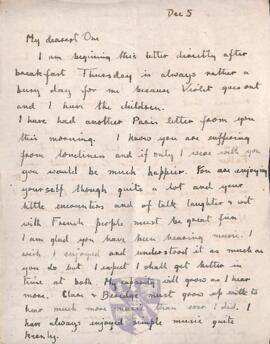 Dec 5
My dearest One
I am begining this letter directly after
breakfast Thursday is always rather a
busy day for me because Violet goes out
and I have the children.
I have had another Paris letter from you
this morning. I know you are suffering
from loneliness and if only I were with you
you would be much happier. You are enjoying
yourself though quite a lot and your
little encounters and of talk laughter & wit
with French people must be great fun
I am glad you have been hearing music. I
wish I enjoyed and understood it as much as
you do but I expect I shall get better in
time at both My capacity will grow as I hear
more. Clare & Beridge must grow up with to
hear much more music than ever I did. I
have always enjoyed simple music quite
keenly.